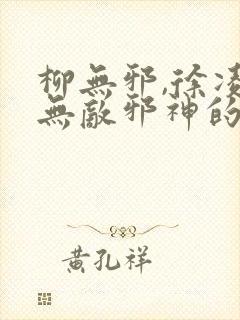 柳無邪,徐凌
無敵邪神的
黃孔祥